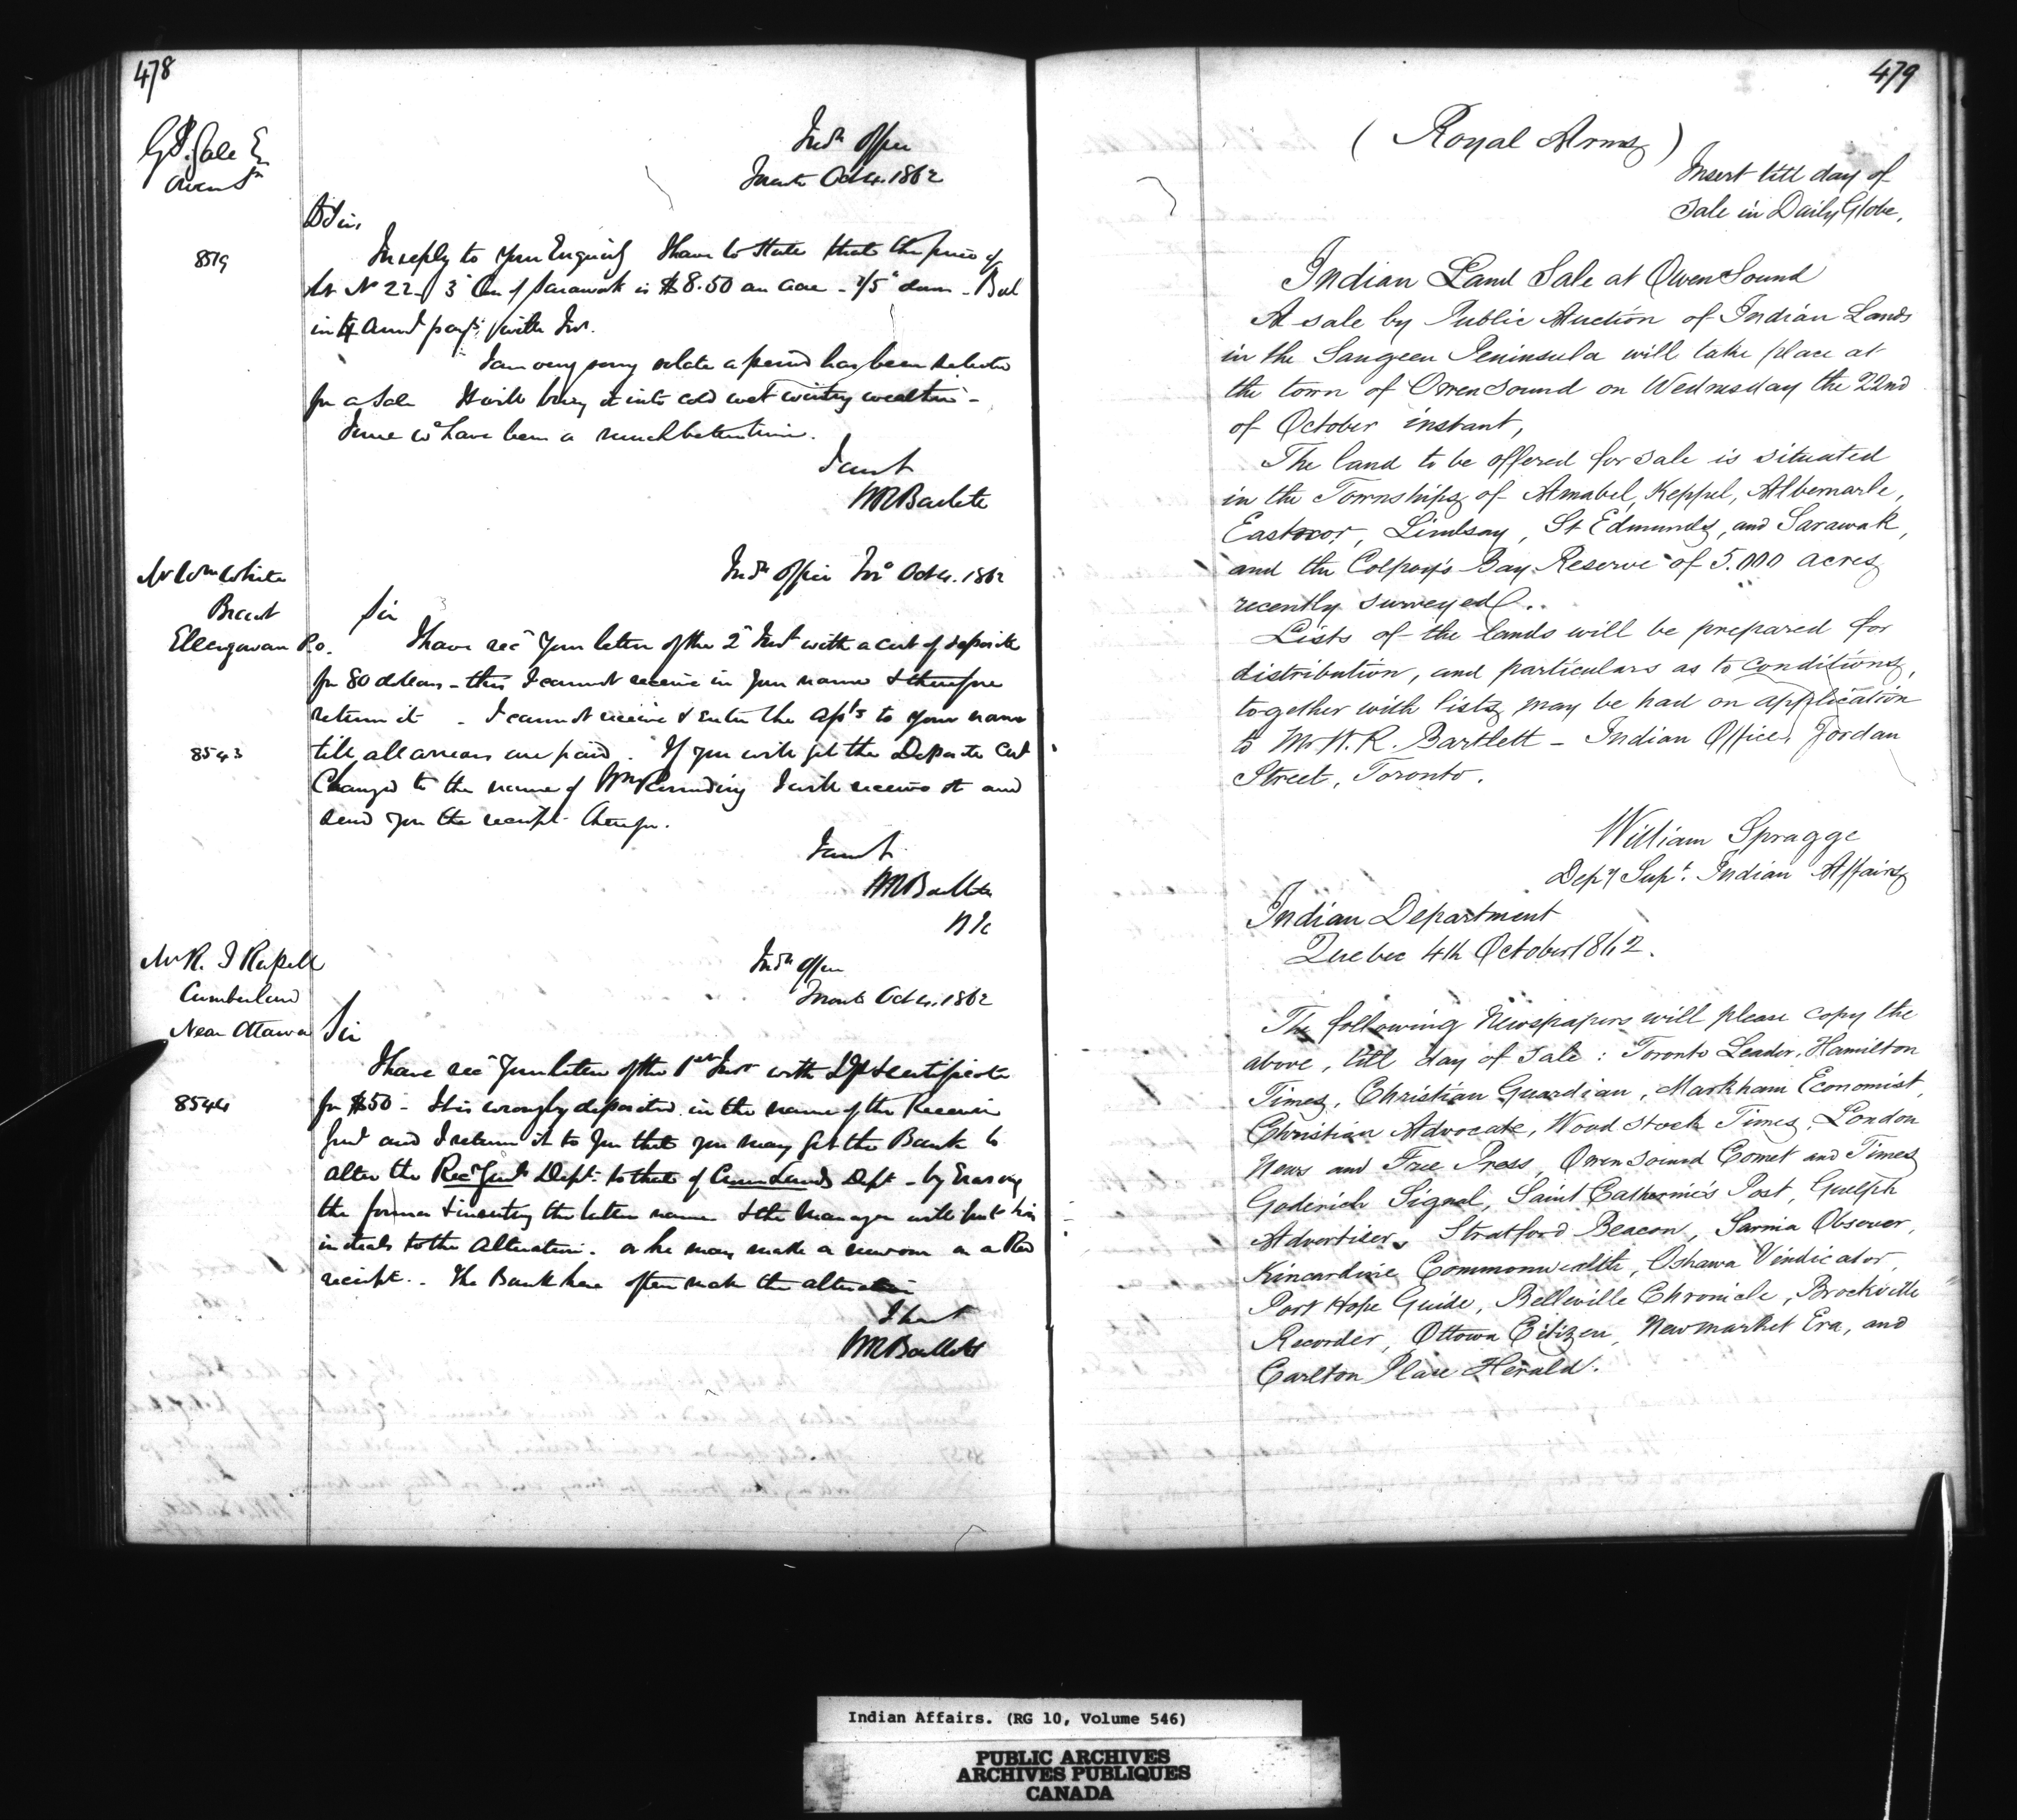 478
Ind. Office
Toronto Oct 4. 1862
Owen Sd
D Sir,
8519
In reply to your Enquiry I have to state that the price of
Lot No 22. 3d Con of Sarawak is $8.50 an acre - 1/5th down - Bal
in 4 Annl payts with Int.
I am very sorry so late a period has been selected
for a Sale It will bring it into cold wet wintry weather -
June wd have been a much better time.
I am &c
WR Bartlett
Mr Wm White
Brant
Ellengowan P.O.
Indn Office Tor. Oct 4. 1862
Sir
I have recd your letter of the 2d Inst with a cert of deposit
for 80 dollars - this I cannot receive in your name & therefore
return it - I cannot receive & enter the to your name
8543
till all arrears are paid. If you will get the Deposite Cert
Changed to the name of Wm I will receive it and
send you the receipt therefor.
I am &c
WR Bartlett
Mr R. J
Cumberland
Near Ottawa
Indn Office
Toronto Oct 4. 1862
Sir
I have recd your letter of the 1st Inst with Dept certificate
8544
for $50 - It is wrongly deposited in the name of the Receiver
Genl and I return it to you that you may get the Bank to
alter the Rec Genls Dept. to that of Crown Lands Dept - by Erasing
the former & inserting the latter name & the Manager will put his
initials to the Alteration. or he may make a new one on a
receipt. - The Bank here often make the alteration
WR Bartlett
479
( Royal Arms )
Insert till day of
Sale in Daily Globe,
Indian Land Sale at Owen Sound
A sale by Public Auction of Indian Lands
in the Saugeen Peninsula will take place at
the town of Owen Sound on Wednesday the 22nd
of October instant,
The land to be offered for sale is situated
in the Townships of Amabel, Keppel, Albemarle,
Eastnor, Lindsay, St Edmunds, and Sarawak,
and the Colpoy's Bay Reserve of 5.000 acres
recently surveyed.
Lists of the lands will be prepared for
distribution, and particulars as to conditions,
together with lists may be had on application
to Mr W. R. Bartlett - Indian Office, Jordan
Street, Toronto.
William Spragge
Depy Supt. Indian Affairs
Indian Department
Quebec 4th October 1862.
The following Newspapers will please copy the
above, till day of Sale: Toronto Leader, Hamilton
Times, Christian Guardian, Markham Economist,
Christian Advocate, Woodstock Times, London
News and Free Press, Owen Sound Comet and Times
Goderich Signal, Saint Catharine's Post, Guelph
Advertiser, Stratford Beacon, Sarnia Observer,
Kincardine Commonwealth, Oshawa Vindicator,
Port Hope Guide, Belleville Chronicle, Brockville
Recorder, Ottowa Citizen, Newmarket Era, and
Carlton Place Herald.
Indian Affairs. (RG 10, Volume 546)
PUBLIC ARCHIVES
ARCHIVES PUBLIQUES
CANADA